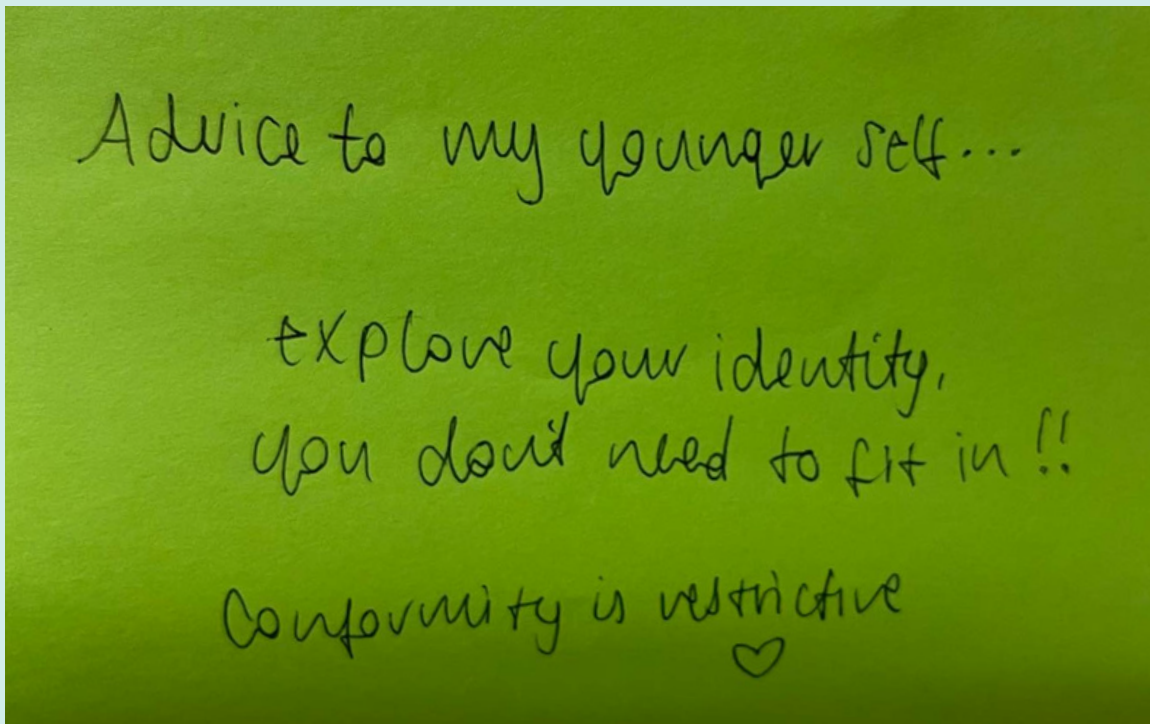 Advice to my younger self...
explore your identity,
you don't need to fit in!!
Conformity is restrictive
♡